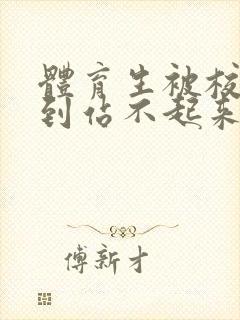 體育生被校
到佔不起來
傅新才